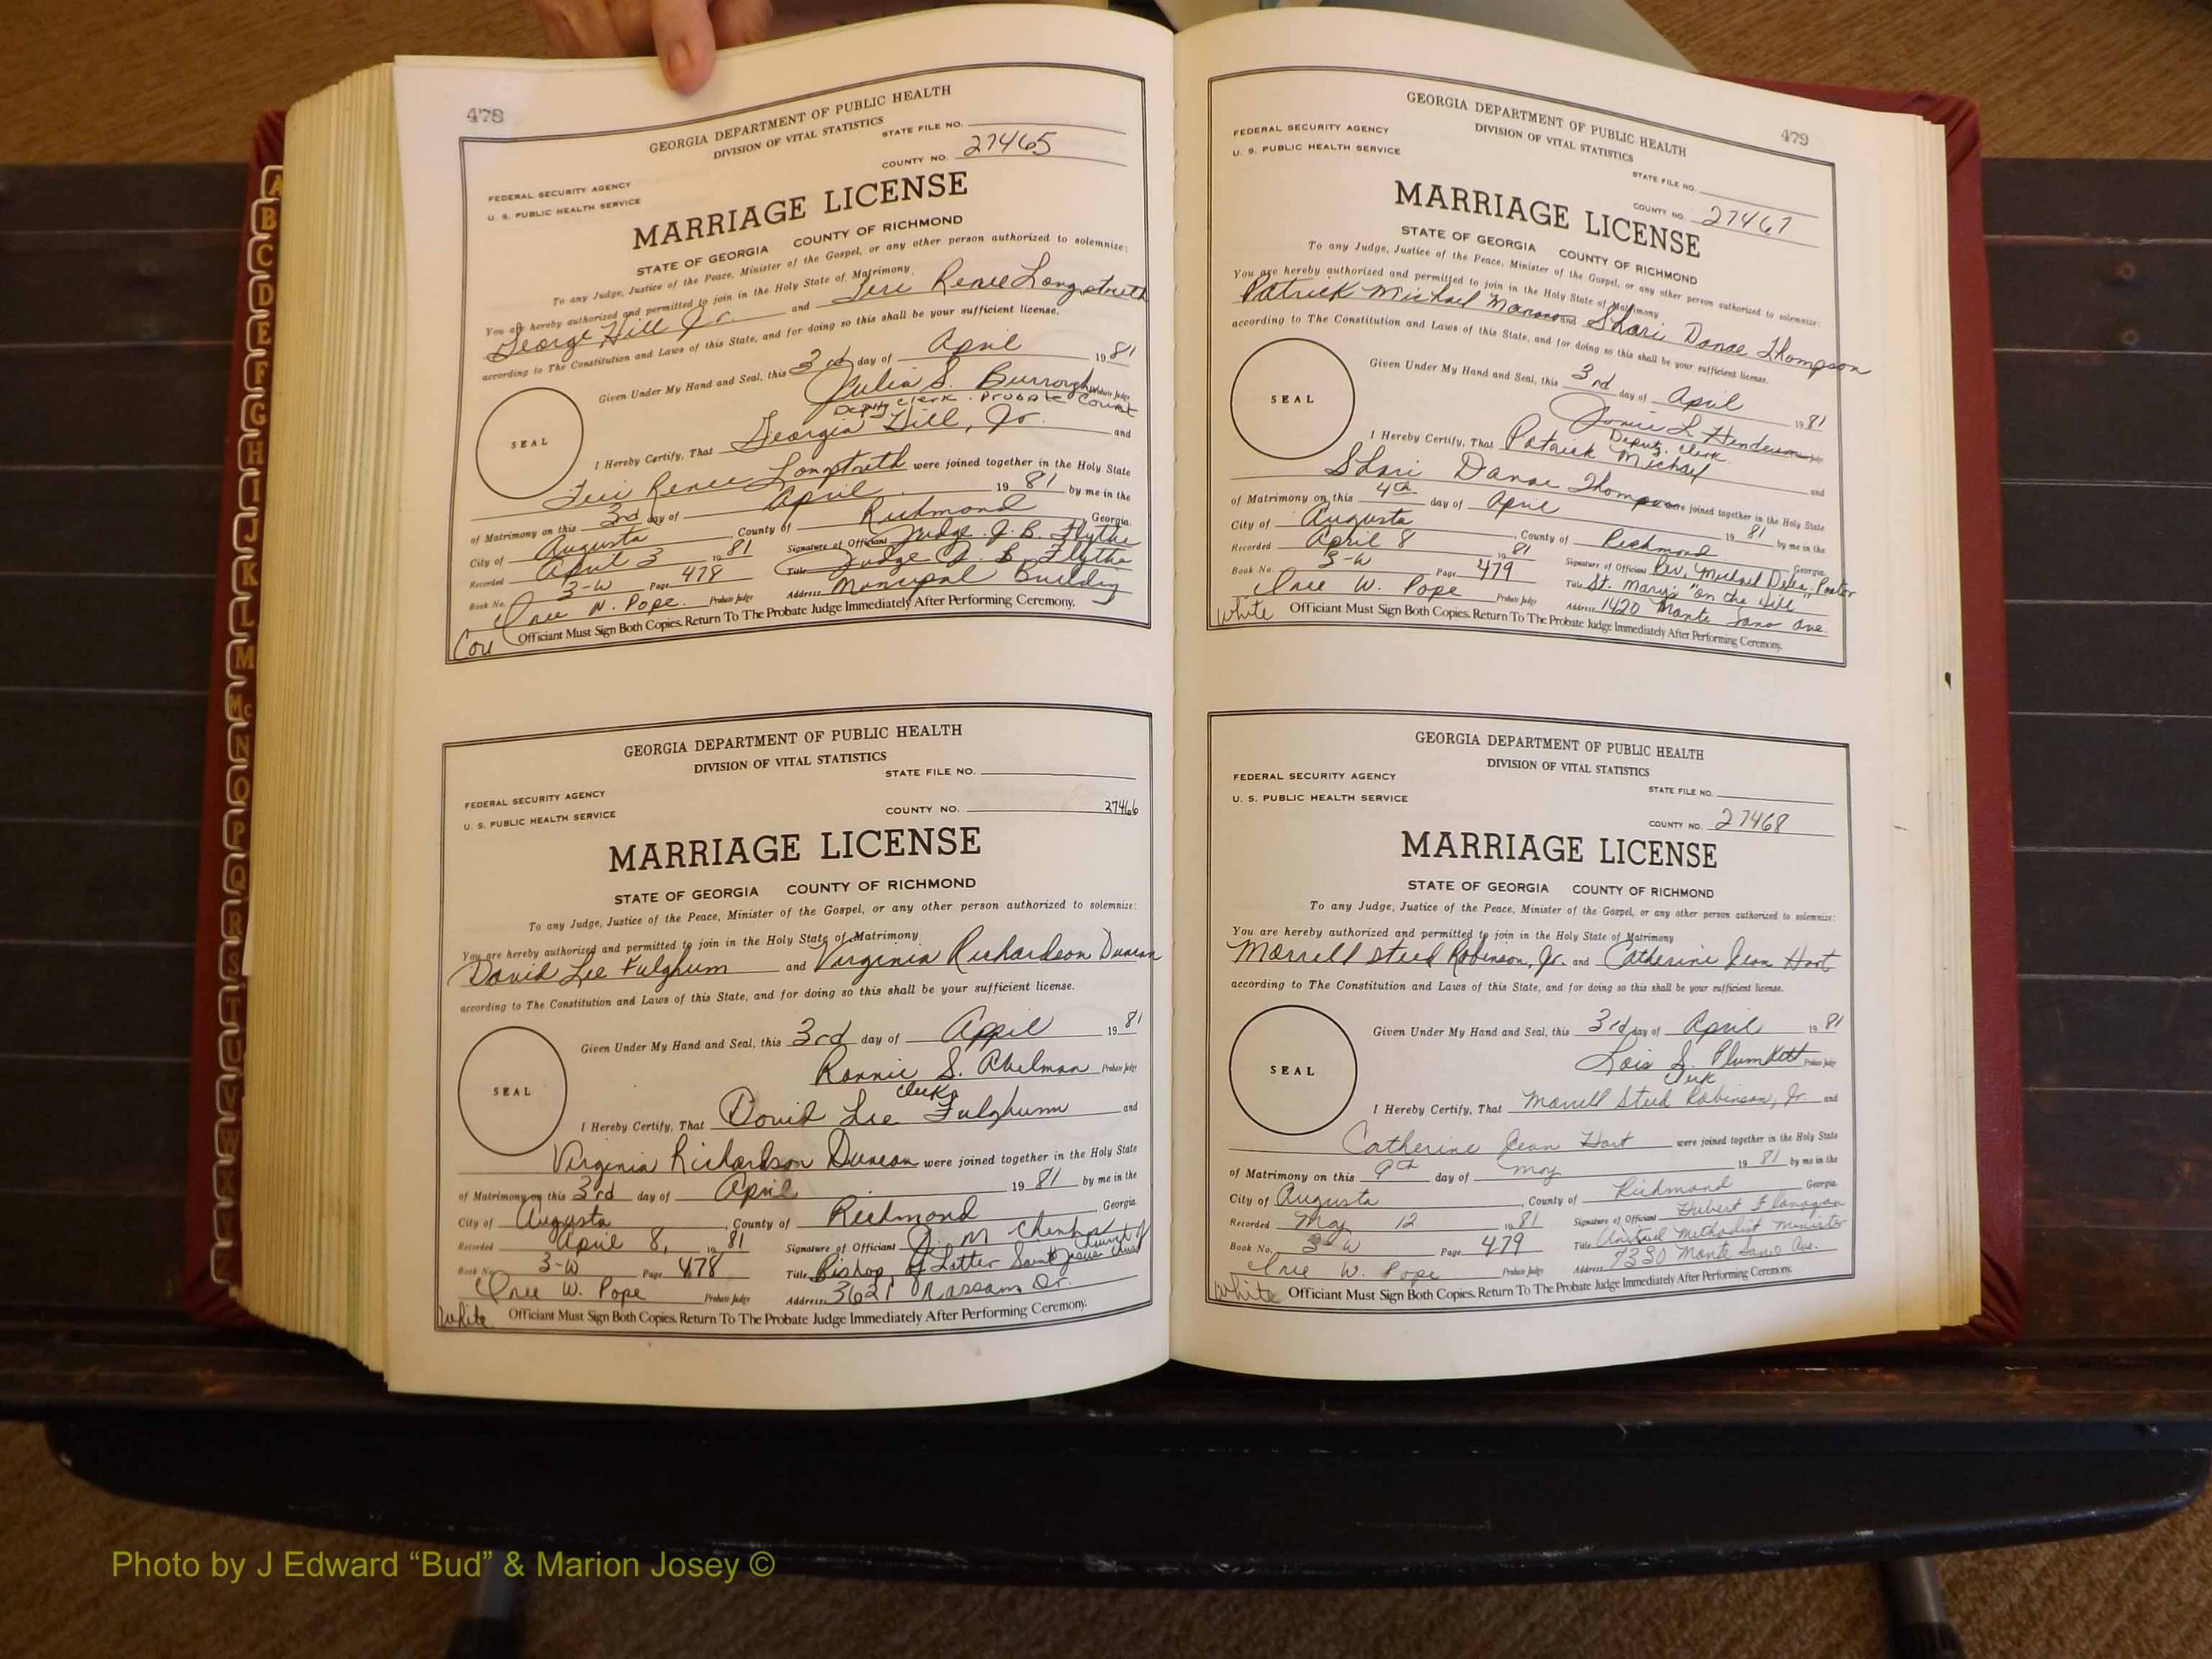 A
B
C
D
E
F
G
H
I
J
K
L
M
Mc
N
O
P
Q
R
S
T
U
V
W
X
Y
Z
478
GEORGIA DEPARTMENT OF PUBLIC HEALTH
DIVISION OF VITAL STATISTICS
STATE FILE NO.
COUNTY NO. 27465
FEDERAL SECURITY AGENCY
U. S. PUBLIC HEALTH SERVICE
MARRIAGE LICENSE
STATE OF GEORGIA COUNTY OF RICHMOND
To any Judge, Justice of the Peace, Minister of the Gospel, or any other person authorized to solemnize:
You are hereby authorized and permitted to join in the Holy State of Matrimony
George Hill Jr. and Teri Renee Longstreth
according to The Constitution and Laws of this State, and for doing so this shall be your sufficient license.
Given Under My Hand and Seal, this 3rd day of April 1981
Julia S. Burroughs Probate Judge
Deputy Clerk. Probate Court
SEAL
I Hereby Certify, That Georgia Hill, Jr. and
Teri Renee Longstreth were joined together in the Holy State
of Matrimony on this 3rd day of April 1981 by me in the
City of Augusta, County of Richmond Georgia.
Recorded April 3 1981 Signature of Officiant Judge J. B. Flythe
Book No. 3-W Page 478 Title Judge J. B. Flythe
Onee W. Pope Probate Judge Address Municipal Building
Officiant Must Sign Both Copies. Return To The Probate Judge Immediately After Performing Ceremony.
Col
GEORGIA DEPARTMENT OF PUBLIC HEALTH
DIVISION OF VITAL STATISTICS
STATE FILE NO.
FEDERAL SECURITY AGENCY
U. S. PUBLIC HEALTH SERVICE
COUNTY NO. 27466
MARRIAGE LICENSE
STATE OF GEORGIA COUNTY OF RICHMOND
To any Judge, Justice of the Peace, Minister of the Gospel, or any other person authorized to solemnize:
You are hereby authorized and permitted to join in the Holy State of Matrimony
David Lee Fulghum and Virginia Richardson Duncan
according to The Constitution and Laws of this State, and for doing so this shall be your sufficient license.
Given Under My Hand and Seal, this 3rd day of April 1981
Ronnie S. Probate Judge
Clerk
SEAL
I Hereby Certify, That David Lee Fulghum and
Virginia Richardson Duncan were joined together in the Holy State
of Matrimony on this 3rd day of April 1981 by me in the
City of Augusta, County of Richmond, Georgia
Recorded April 8, 1981 Signature of Officiant M
Book No. 3-W Page 478 Title Bishop of Latter Saint Church of Jesus Christ
Onee W. Pope Probate Judge Address 3621 Nassam Dr.
White Officiant Must Sign Both Copies. Return To The Probate Judge Immediately After Performing Ceremony.
479
GEORGIA DEPARTMENT OF PUBLIC HEALTH
DIVISION OF VITAL STATISTICS
FEDERAL SECURITY AGENCY
U. S. PUBLIC HEALTH SERVICE
STATE FILE NO.
COUNTY NO. 27467
MARRIAGE LICENSE
STATE OF GEORGIA COUNTY OF RICHMOND
To any Judge, Justice of the Peace, Minister of the Gospel, or any other person authorized to solemnize:
You are hereby authorized and permitted to join in the Holy State of Matrimony
Patrick Michael and Shari Danae Thompson
according to The Constitution and Laws of this State, and for doing so this shall be your sufficient license.
Given Under My Hand and Seal, this 3rd day of April 1981
L Henderson
Deputy Clerk
SEAL
I Hereby Certify, That Patrick Michael and
Shari Danae Thompson were joined together in the Holy State
of Matrimony on this 4th day of April 1981 by me in the
City of Augusta, County of Richmond Georgia
Recorded April 8 1981 Signature of Officiant Rev. Michael Pastor
Book No. 3-W Page 479 Title St. Mary's "on the Hill"
Onee W. Pope Probate Judge Address 1420 Monte Sano Ave.
White Officiant Must Sign Both Copies. Return To The Probate Judge Immediately After Performing Ceremony.
GEORGIA DEPARTMENT OF PUBLIC HEALTH
DIVISION OF VITAL STATISTICS
FEDERAL SECURITY AGENCY
U. S. PUBLIC HEALTH SERVICE
STATE FILE NO.
COUNTY NO. 27468
MARRIAGE LICENSE
STATE OF GEORGIA COUNTY OF RICHMOND
To any Judge, Justice of the Peace, Minister of the Gospel, or any other person authorized to solemnize:
You are hereby authorized and permitted to join in the Holy State of Matrimony
Morrell Steed Robinson, Jr. and Catherine Jean Hart
according to The Constitution and Laws of this State, and for doing so this shall be your sufficient license.
Given Under My Hand and Seal, this 3rd day of April 1981
Lois S. Plumkett Probate Judge
Clerk
SEAL
I Hereby Certify, That Morrell Steed Robinson, Jr. and
Catherine Jean Hart were joined together in the Holy State
of Matrimony on this 9th day of May 1981 by me in the
City of Augusta, County of Richmond Georgia
Recorded May 12 1981 Signature of Officiant Hubert Flanagan
Book No. 3-W Page 479 Title United Methodist Minister
Onee W. Pope Probate Judge Address 2330 Monte Sano Ave.
White Officiant Must Sign Both Copies. Return To The Probate Judge Immediately After Performing Ceremony.
Photo by J Edward “Bud” & Marion Josey ©